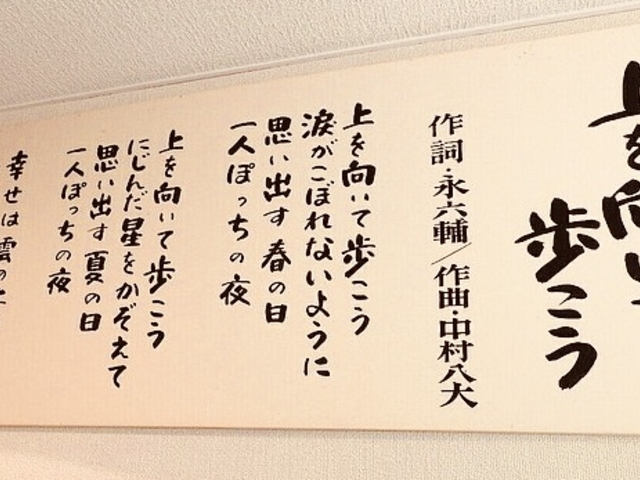 上を向いて
歩こう
作詞・永六輔／作曲・中村八大
上を向いて歩こう
涙がこぼれないように
思い出す春の日
一人ぽっちの夜
上を向いて歩こう
にじんだ星をかぞえて
思い出す夏の日
一人ぽっちの夜
幸せは雲の上